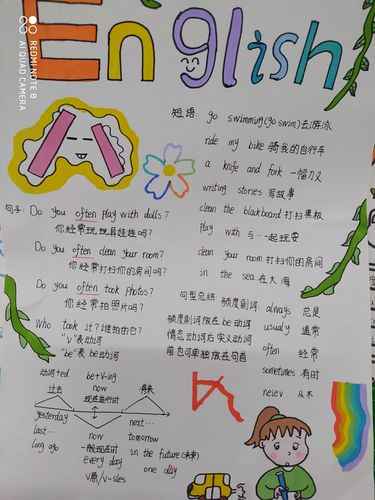 English
REDMI NOTE 8
AI QUAD CAMERA
短语 go swimming(go swim)去游泳
ride my bike 骑我的自行车
a knife and fork 一幅刀叉
writing stories 写故事
clean the blackboard 打扫黑板
play with 与…一起玩耍
clean your room 打扫你的房间
in the sea 在大海
句子: Do you often play with dolls?
你经常玩玩具娃娃吗?
Do you often clean your room?
你经常打扫你的房间吗?
Do you often took photos?
你经常拍照片吗?
Who took it?谁拍的它?
"v"表动词
"be"表 be动词
句型总结 频度副词: always 总是
频度副词放在be动词 usually 通常
情态动词后实义动词 often 经常
前也可单独放在句首
sometimes 有时
never 从不
动词+ed be+v-ing
过去 now 将来
现在进行时
yesterday next…
last… now tomorrow
long ago 一般现在时 in the future(未来)
every day one day
V原/V-s/es